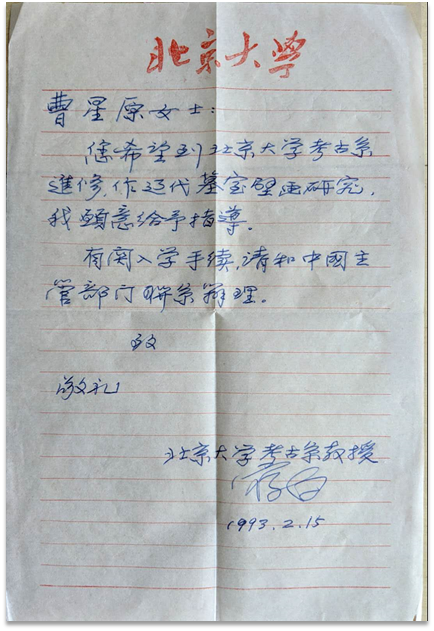 北京大学
曹星原女士：
您希望到北京大学考古系
進修，作辽代墓室壁画研究，
我願意给予指導。
有関入学手续，请和中國主
管部门聯系辦理。
致
敬礼
北京大学考古系教授
宿白
1993.2.15